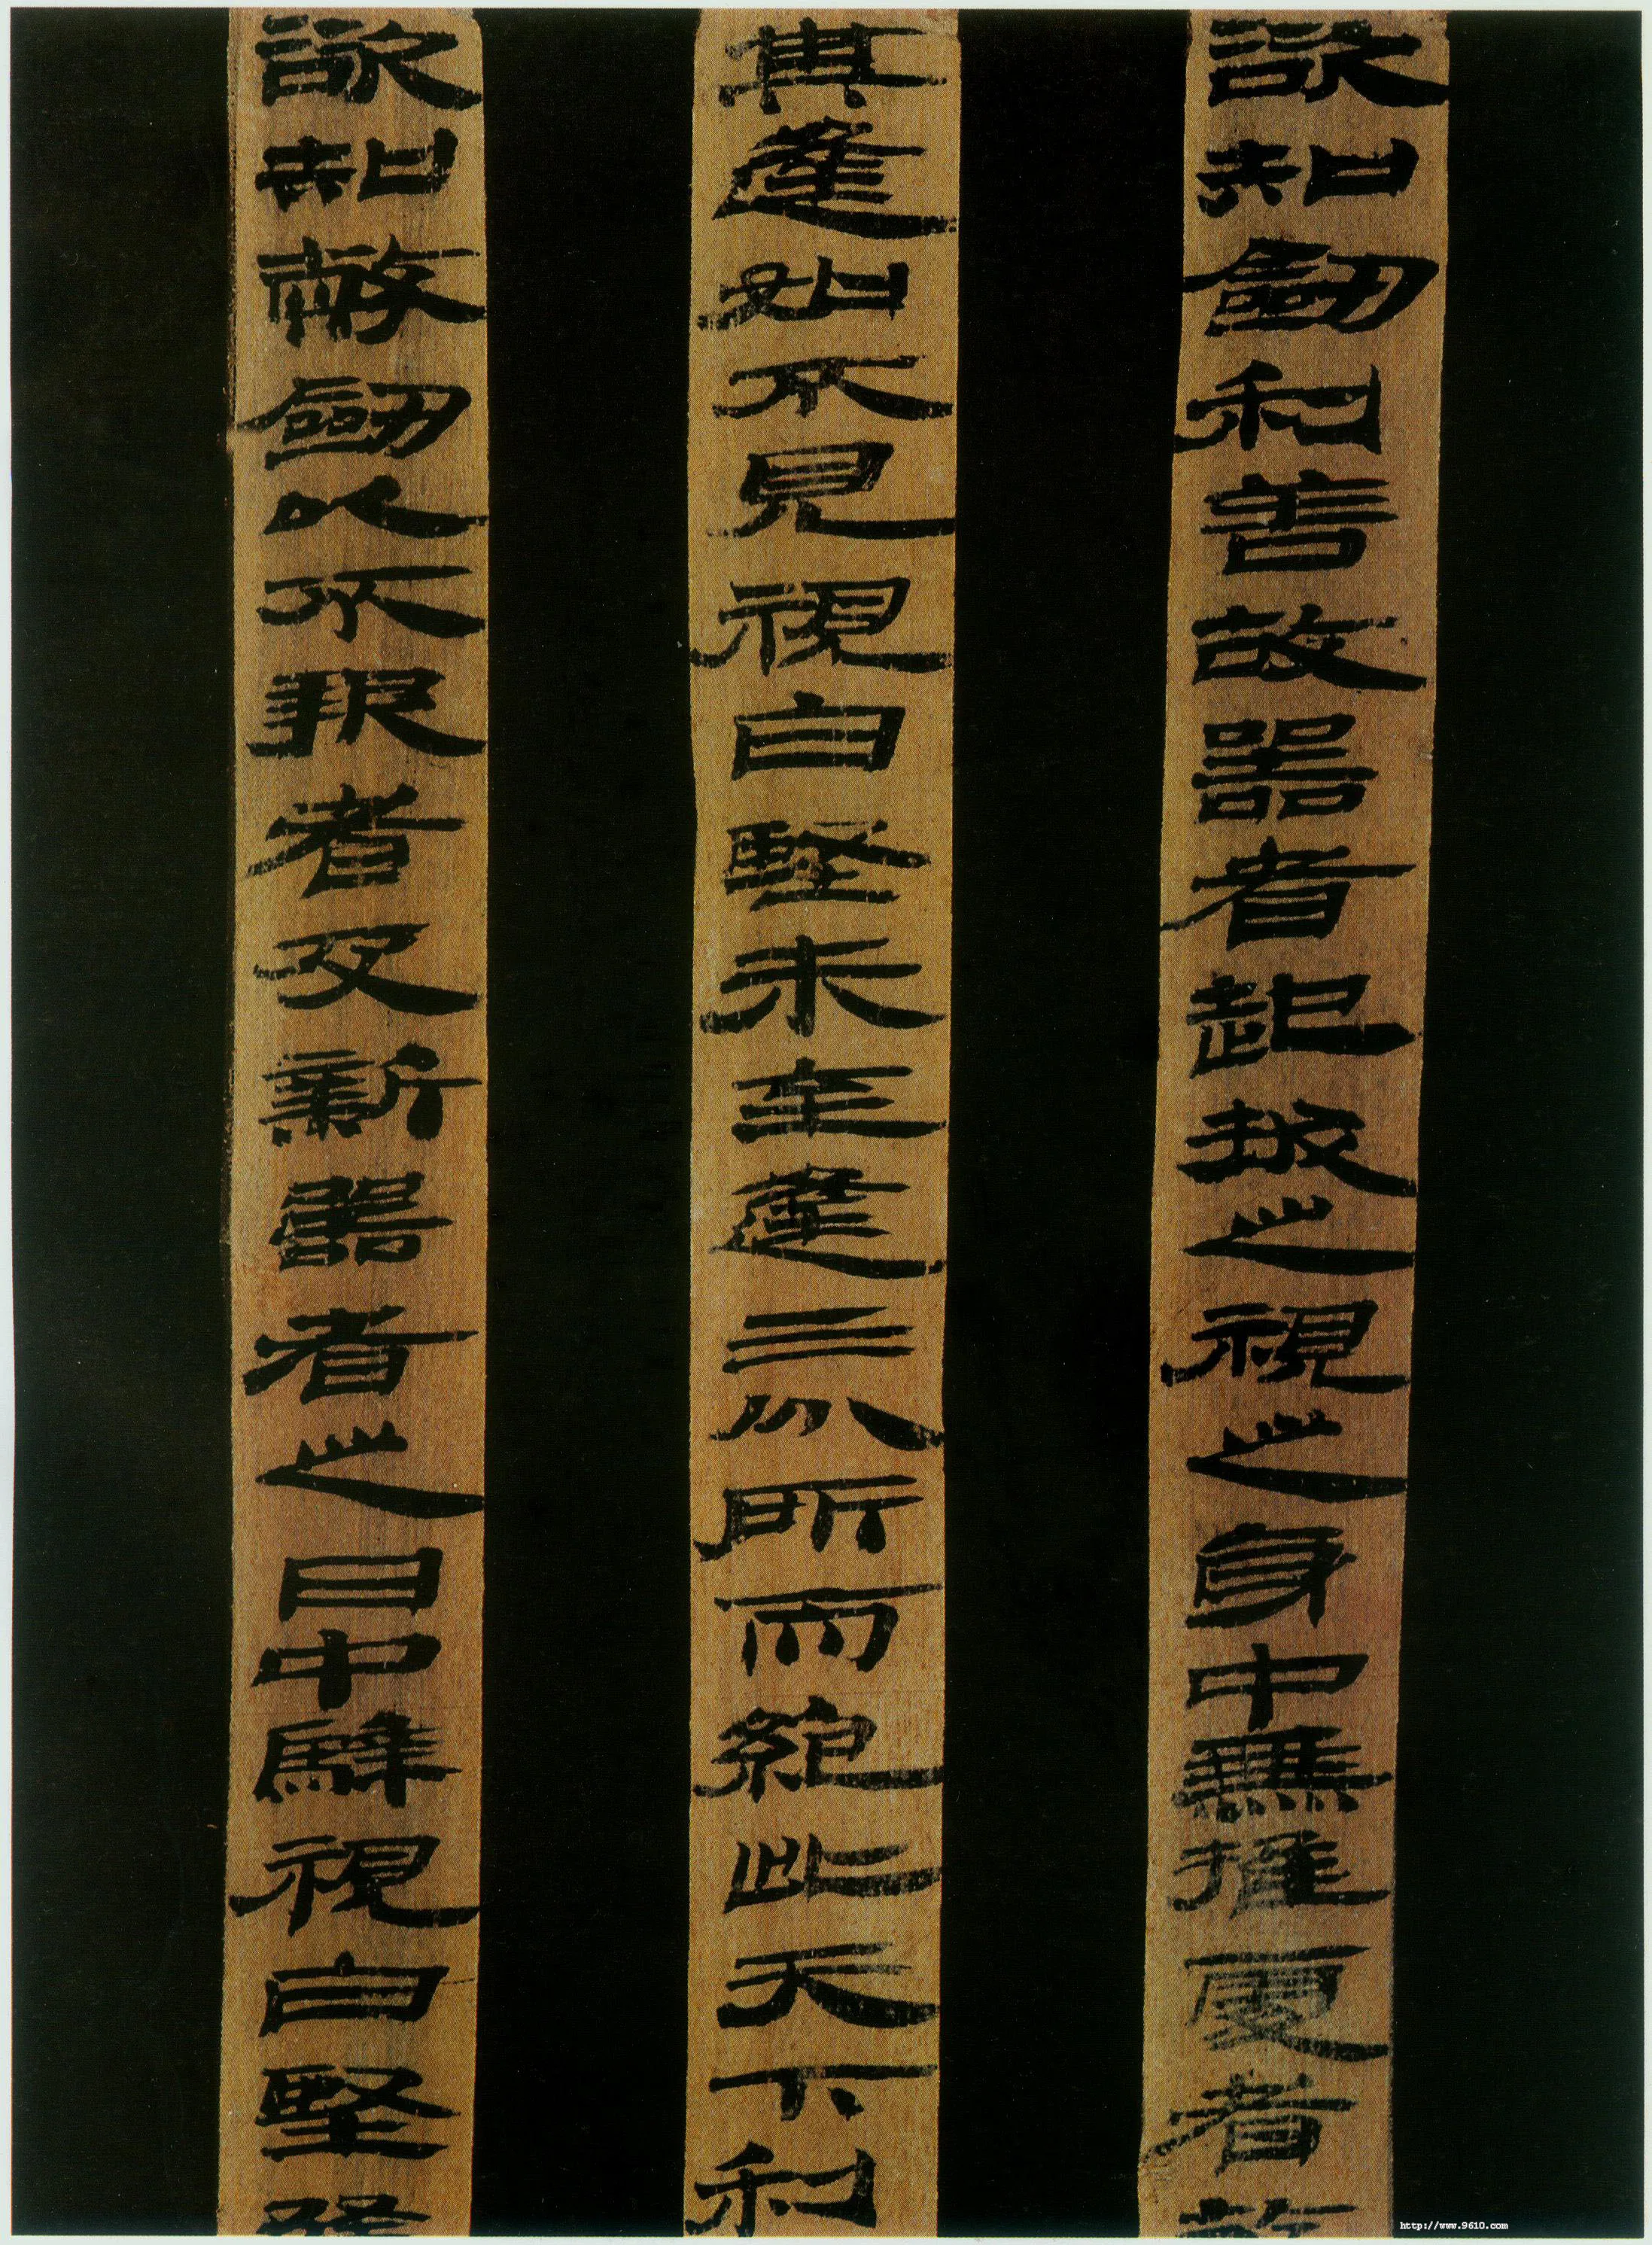 欲知劒利善故器者起拔之視之身中無推處者故
其逢如不見視白堅未至逢三分所而絕此天下利
欲知幣劒以不報者及新器者之日中騂視白堅
http://www.9610.com